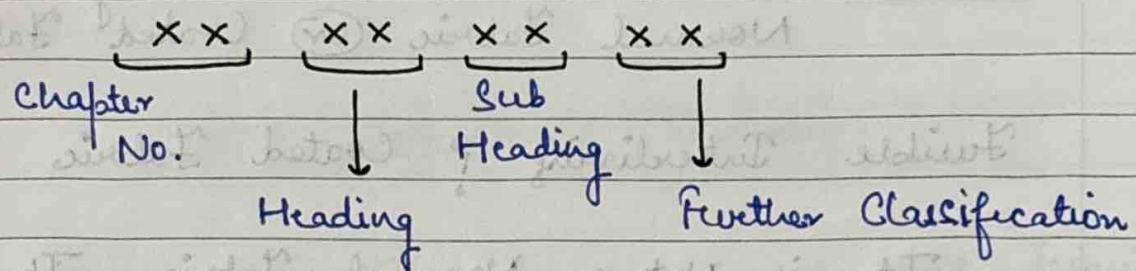 ×× ×× ×× ××
Chapter No. Sub Heading
Heading Further Classification